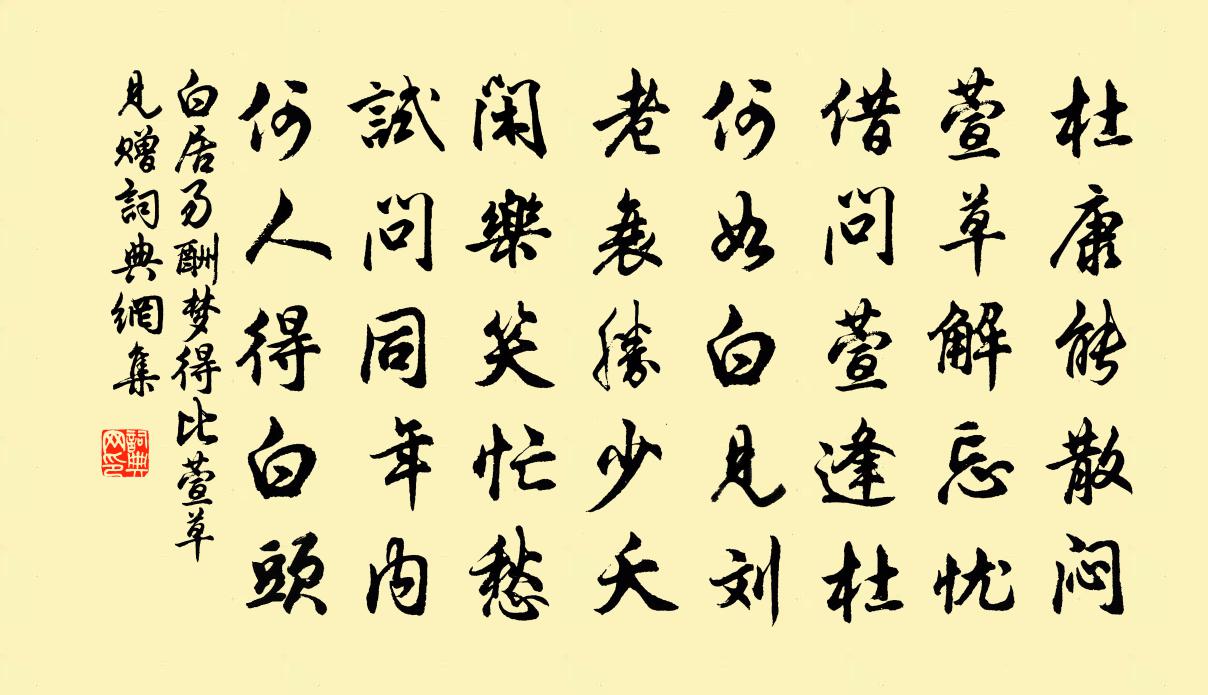 杜康能散闷
萱草解忘忧
借问萱逢杜
何如白见刘
老衰勝少夭
閑樂笑忙愁
試問同年内
何人得白頭
白居易酬梦得比萱草
见赠詞典網集
詞典网印